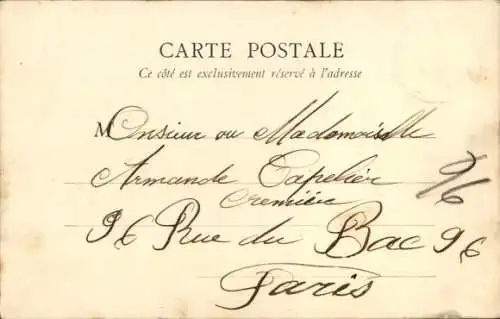 CARTE POSTALE
Ce côté est exclusivement réservé à l'adresse
Monsieur ou Mademoiselle
Armande Capelier 96
Cremière
96 Rue du Bac 96
Paris